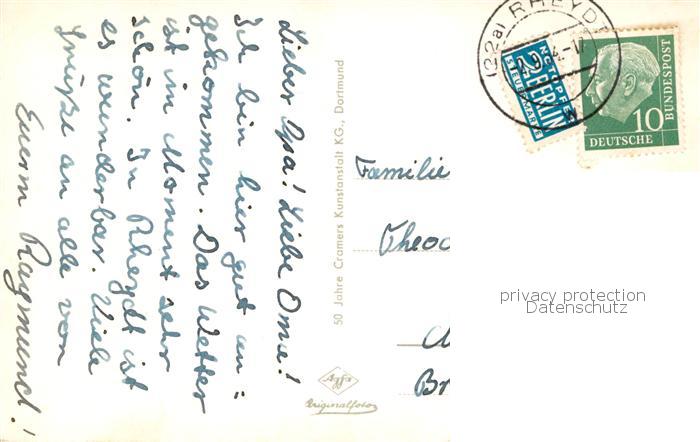 Lieber Opa! Liebe Oma!
Ich bin hier gut an=
gekommen. Das Wetter
ist im Moment sehr
schön. In Rheydt ist
es wunderbar. Viele
Grüße an alle von
Euerm Raymund!
50 Jahre Cramers Kunstanstalt KG., Dortmund
Agfa
Originalfoto
Familie
Theod
Br
(22a) RHEYDT
NOTOPFER
2 BERLIN
STEUERMARKE
DEUTSCHE
10
BUNDESPOST
privacy protection
Datenschutz